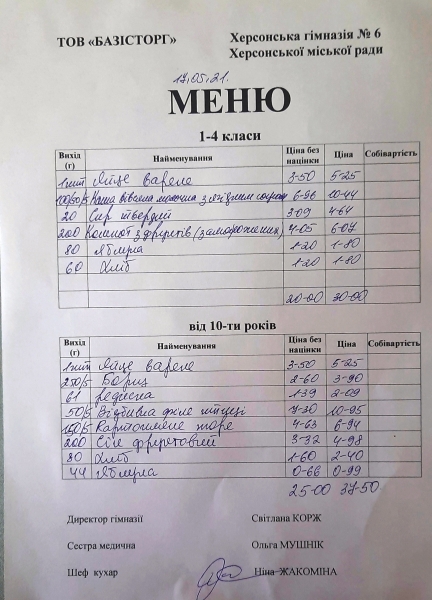 ТОВ «БАЗІСТОРГ» Херсонська гімназія № 6
Херсонської міської ради
17.05.21.
МЕНЮ
1-4 класи
Вихід (г) Найменування Ціна без націнки Ціна Собівартість
1шт Яйце варене 3-50 5-25
Каша вівсяна молочна з ягідним соусом 6-96 10-44
20 Сир твердий 3-09 4-64
200 Компот з фруктів (заморожених) 4-05 6-07
80 Яблука 1-20 1-80
60 Хліб 1-20 1-80
20-00 30-00
від 10-ти років
Вихід (г) Найменування Ціна без націнки Ціна Собівартість
1шт Яйце варене 3-50 5-25
250/5 Борщ 2-60 3-90
61 редиска 1-39 2-09
50/5 Відбивна філе птиці 7-30 10-95
150/5 Картопляне пюре 4-63 6-94
200 Сік фруктовий 3-32 4-98
80 Хліб 1-60 2-40
44 Яблука 0-66 0-99
25-00 37-50
Директор гімназії Світлана КОРЖ
Сестра медична Ольга МУШНІК
Шеф кухар Ніна ЖАКОМІНА